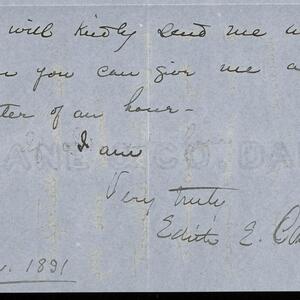 will kindly send me
you can give me a
ter of an hour—
I am
Very truly
Edith E.
1891